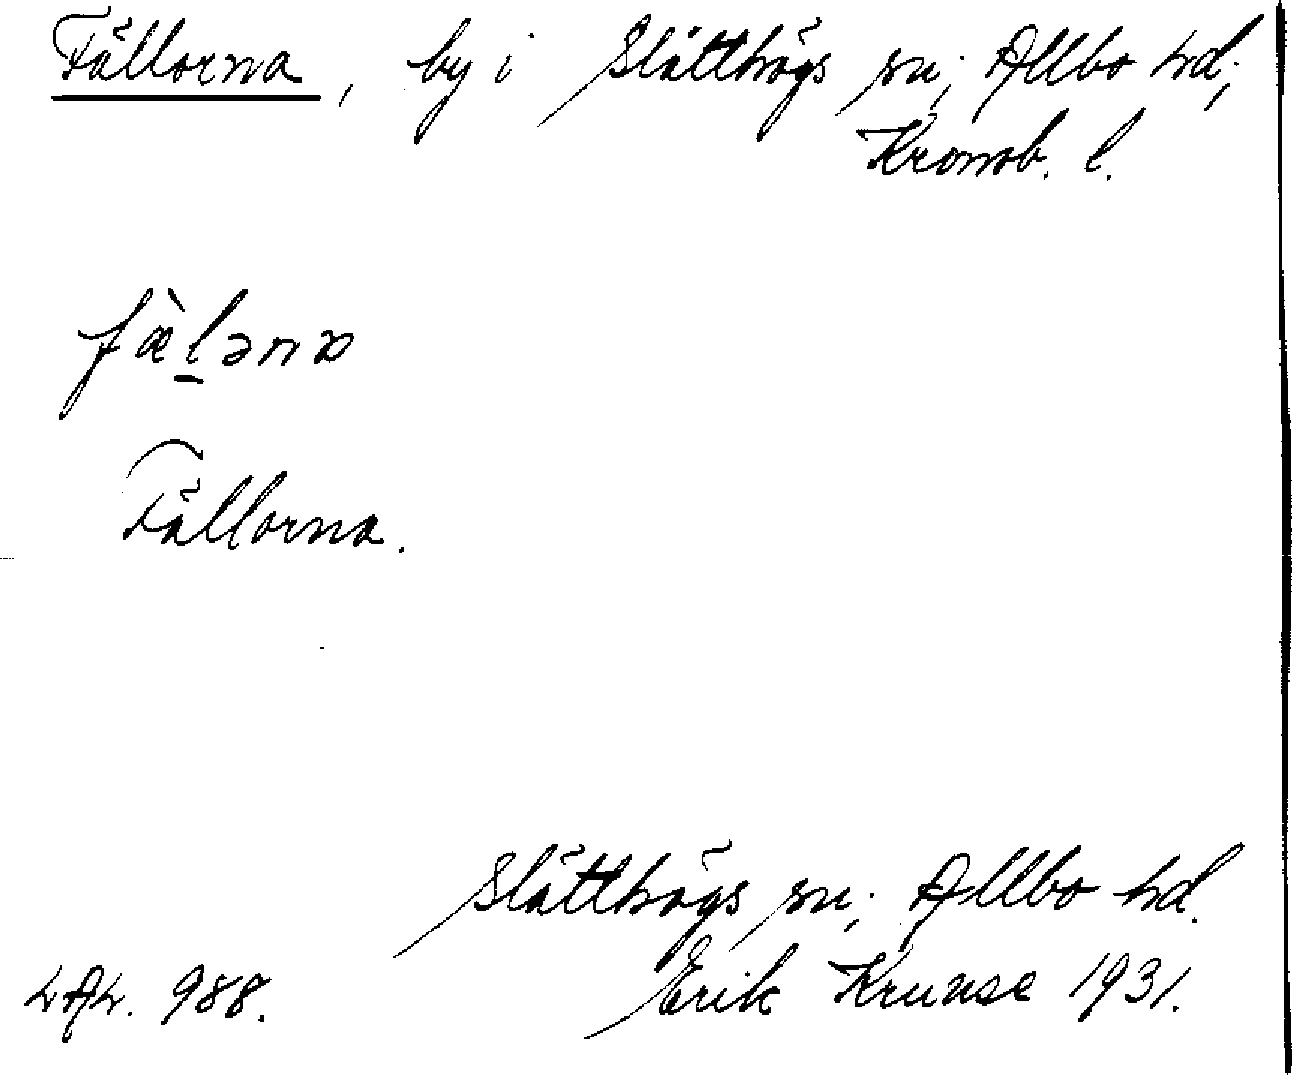 Fällorna, by i Slätthögs sn; Allbo hd;
Kronob. l.
fæ̀l̠ənɒ
Fällorna.
Slätthögs sn; Allbo hd.
LAL. 988. Erik Kruuse 1931.